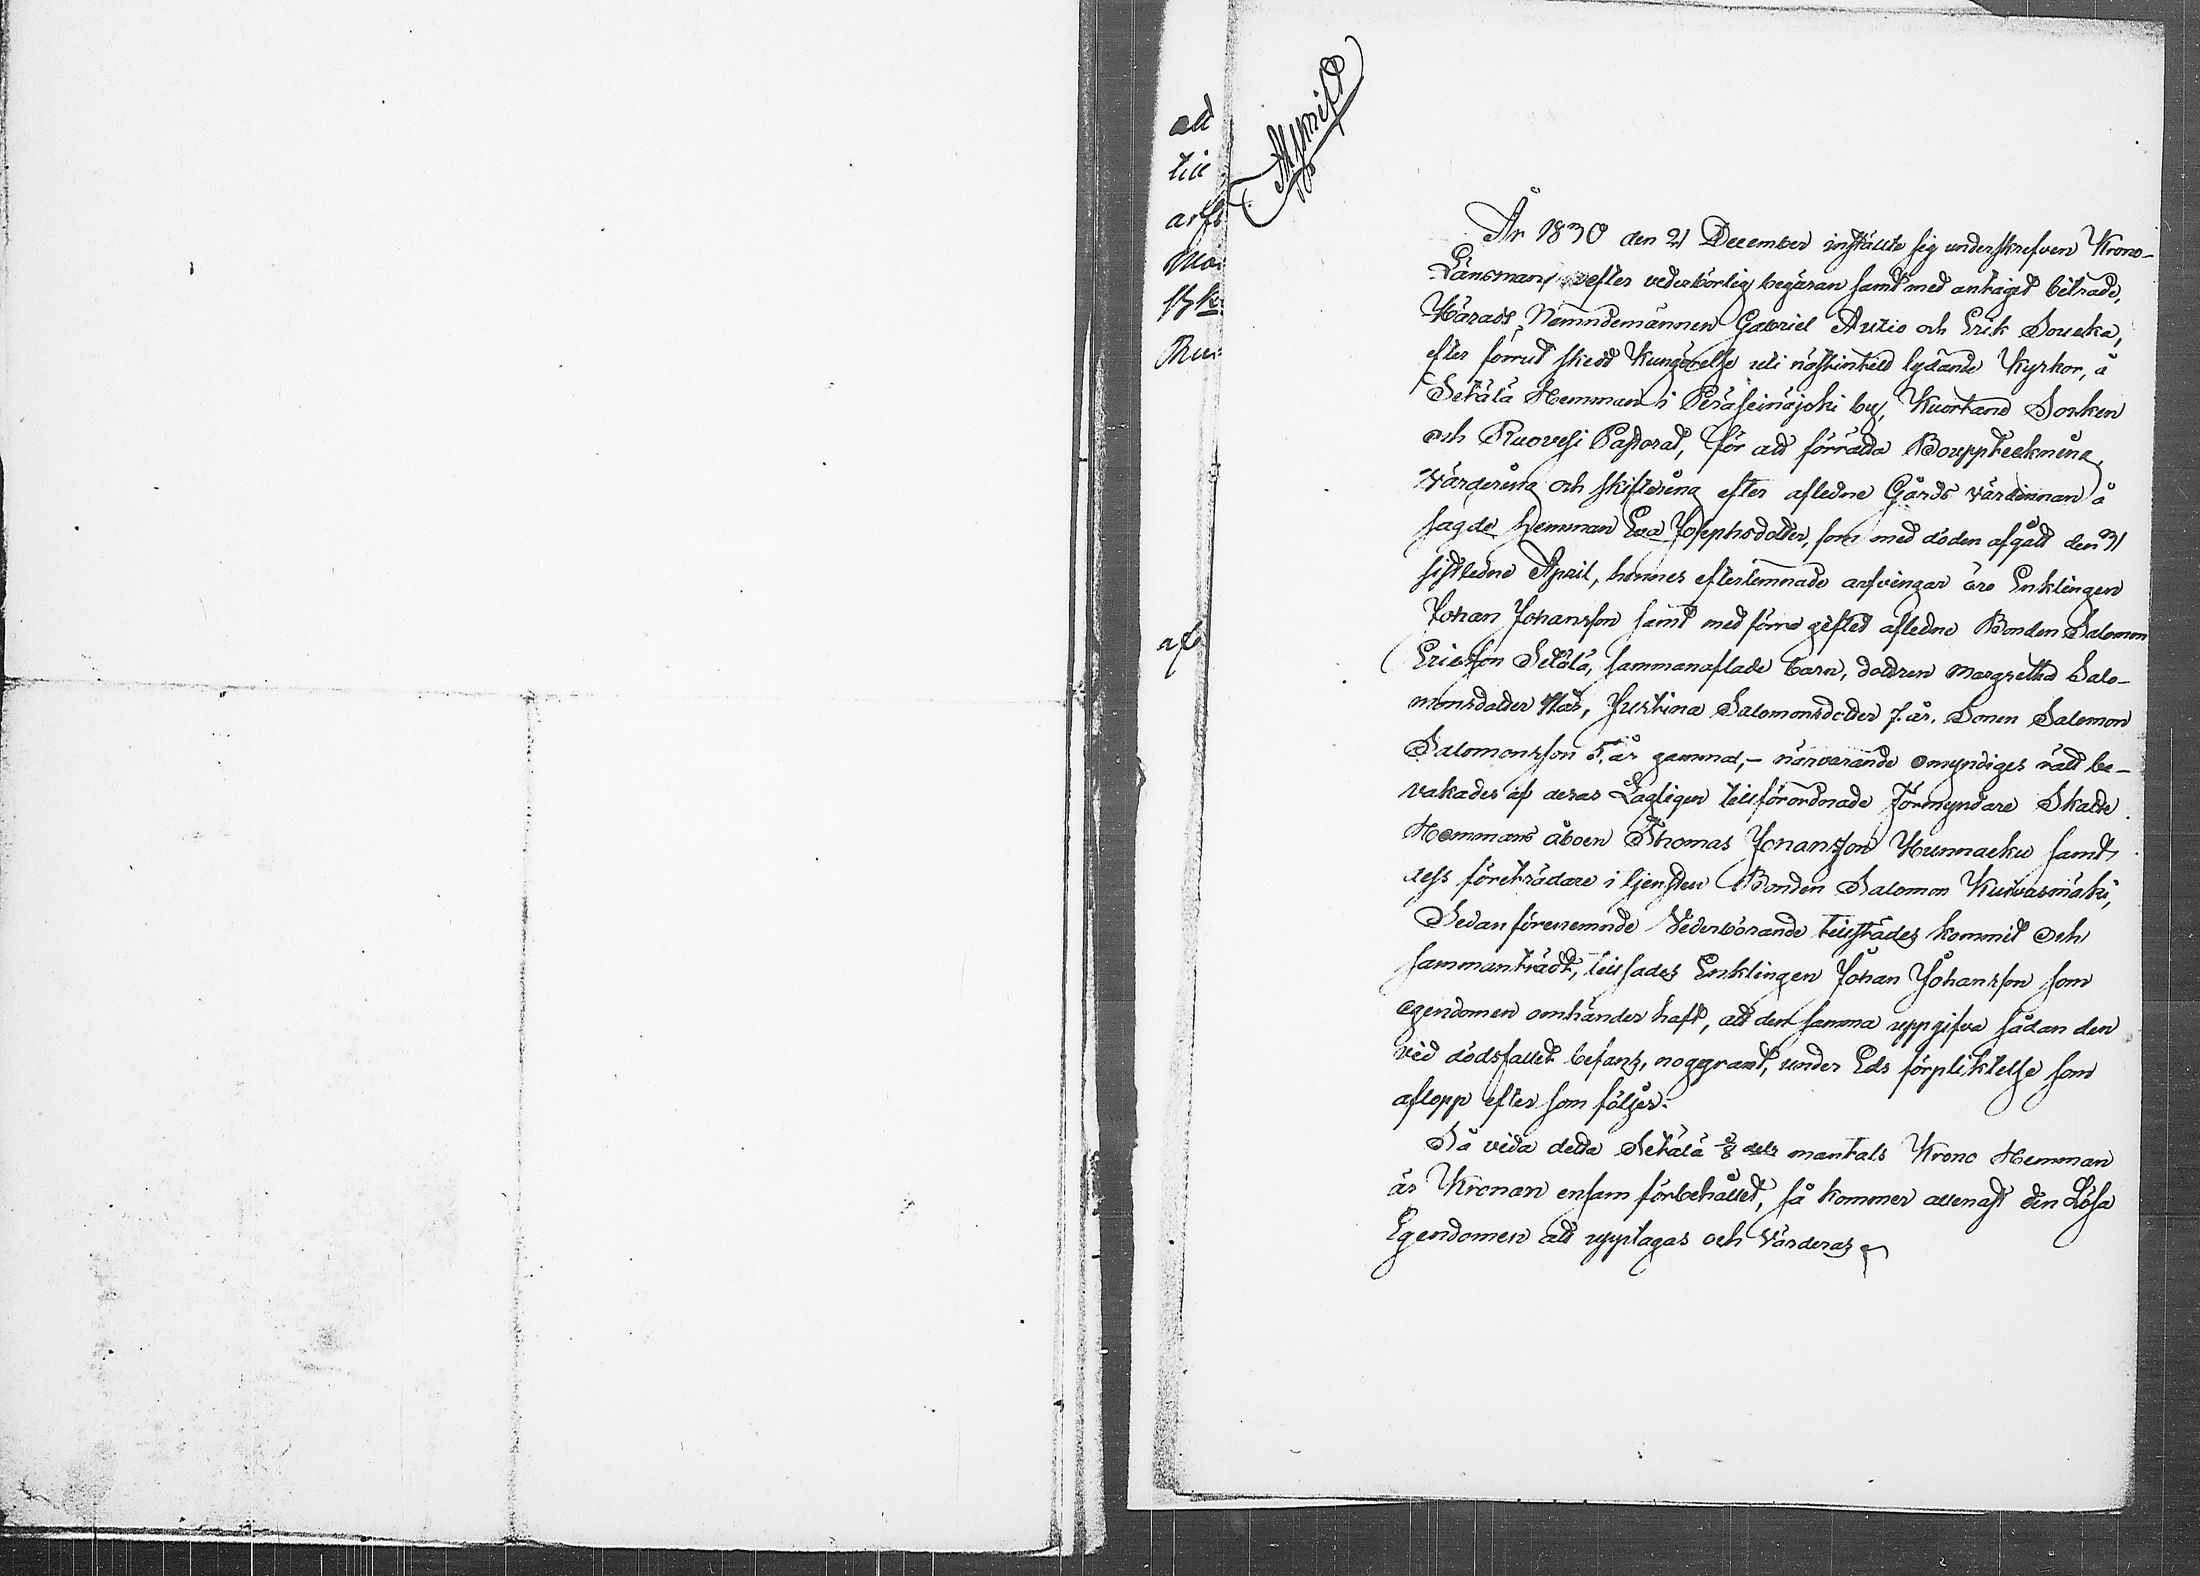 Afskrift
att
till
arfs
af
År 1830 den 21 December inställte sig underskrefven Krono-
Länsman, efter vederbörlig begäran samt med antagit biträde,
Härads Nemndemännen Gabriel Autio och Erik Soucka,
efter förrut skedd Kungörelse uti nästintill lydande Kyrkor, å
Setälä Hemman i Peräseinäjoki by, Kuortane Socken
och Ruovesi Pastorat, för att förrätta Bouppteckning,
Värdering och skiftering efter afledne Gårds värdinnan å
sagde hemman Eva Josephsdotter, som med döden afgått den 31
sistledne April, hennes efterlemnade arfvingar äro Enklingen
Johan Johansson samt med förre giftet afledne Bonden Salomon
Ericsson Setälä, sammanaflade barn, dottren Margretha Salo-
monsdotter 11 år, Justina Salomonsdotter 7. år. Sonen Salomon
Salomonsson 5. år gammal, - närvarande omyndiges rätt be-
vakades af deras Lagligen tillförordnade Förmyndare Skatte
Hemmans åboen Thomas Johansson Hunnacku samt
dess företrädare i tjensten Bonden Salomon Kuivasmäki,
Sedan förenemnde Vederbörande tillstädes kommit och
sammanträdt, tillsades Enklingen Johan Johansson som
egendomen omhänder haft, att den samma uppgifva sådan den
vid dödsfallet befans, noggrant, under Eds förpliktelse som
aflopp efter som följer:
Så vida detta Setälä 3/8 dels mantals Krono Hemman
är Kronan ensam förbehållet, så kommer allenast den Lösa
Egendomen att upptagas och Värderas